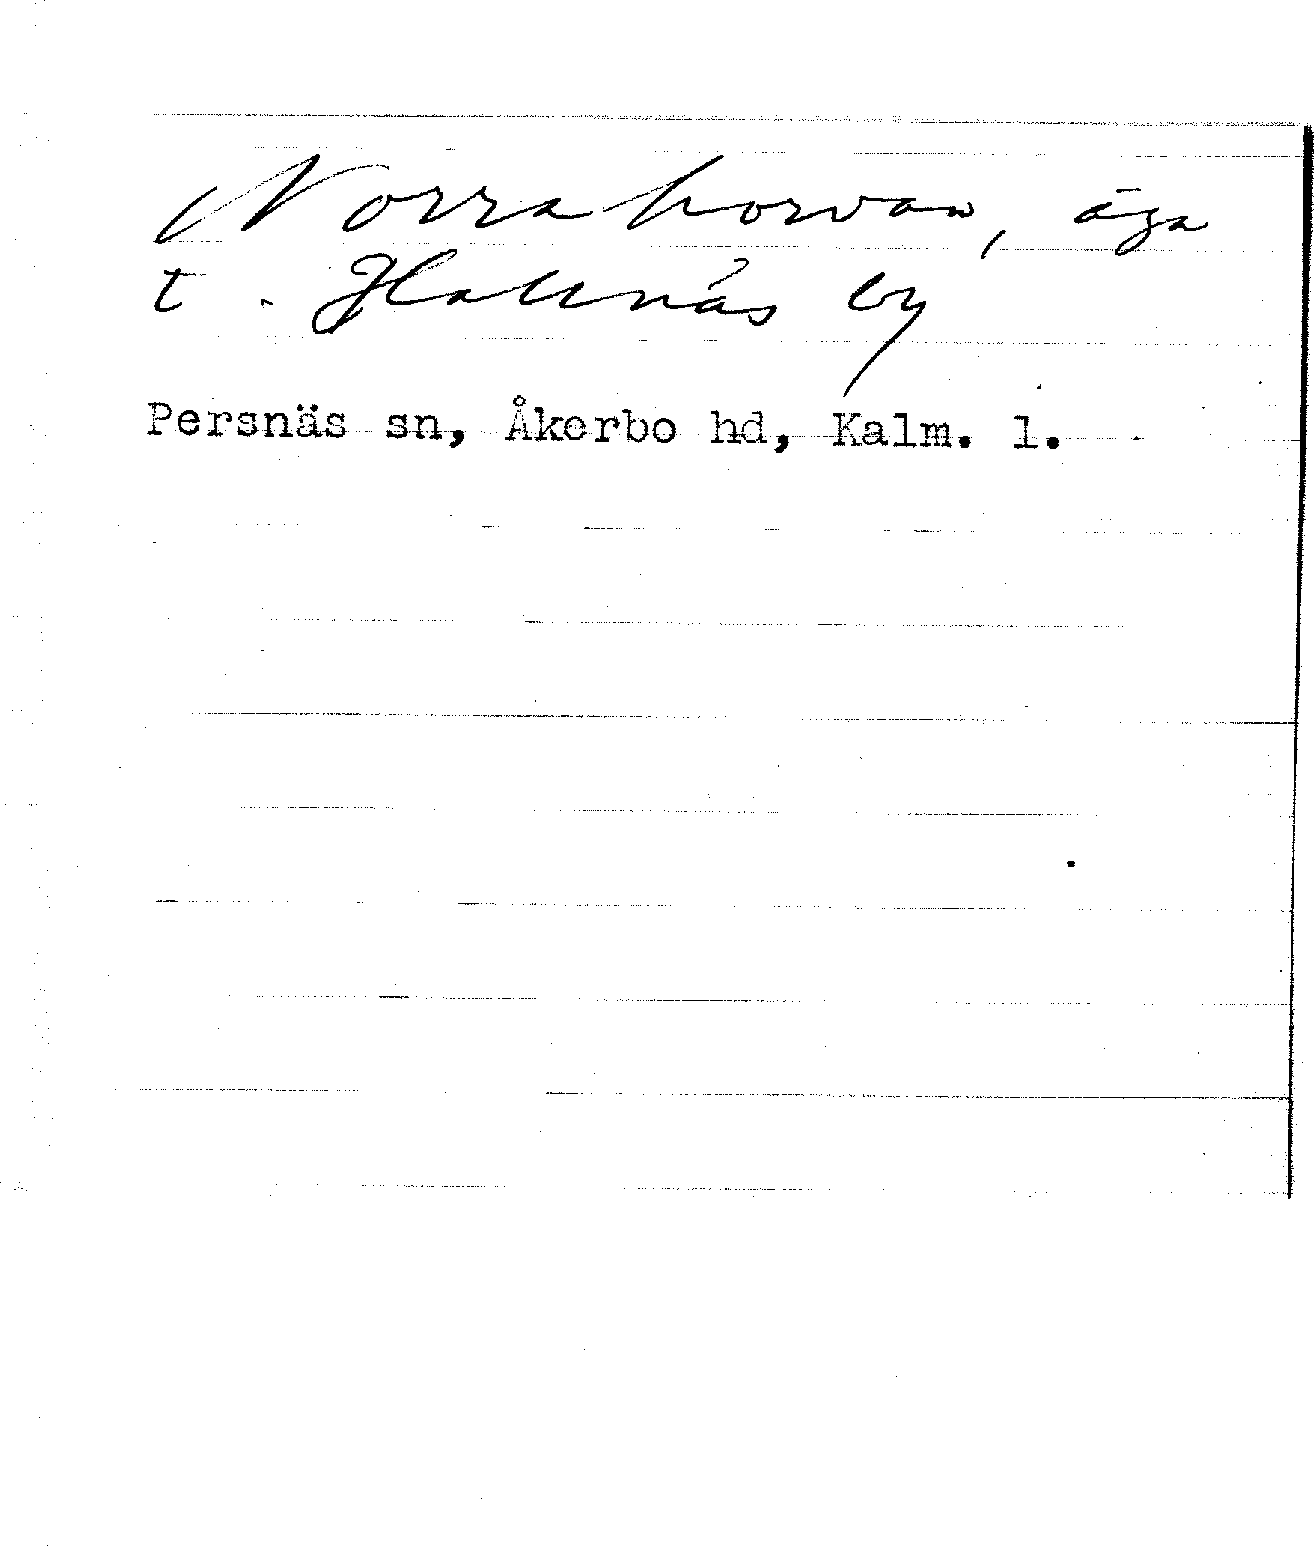 Norrahorvan, äga
t. Hallnäs by
Persnäs sn, Åkerbo hd, Kalm. l.